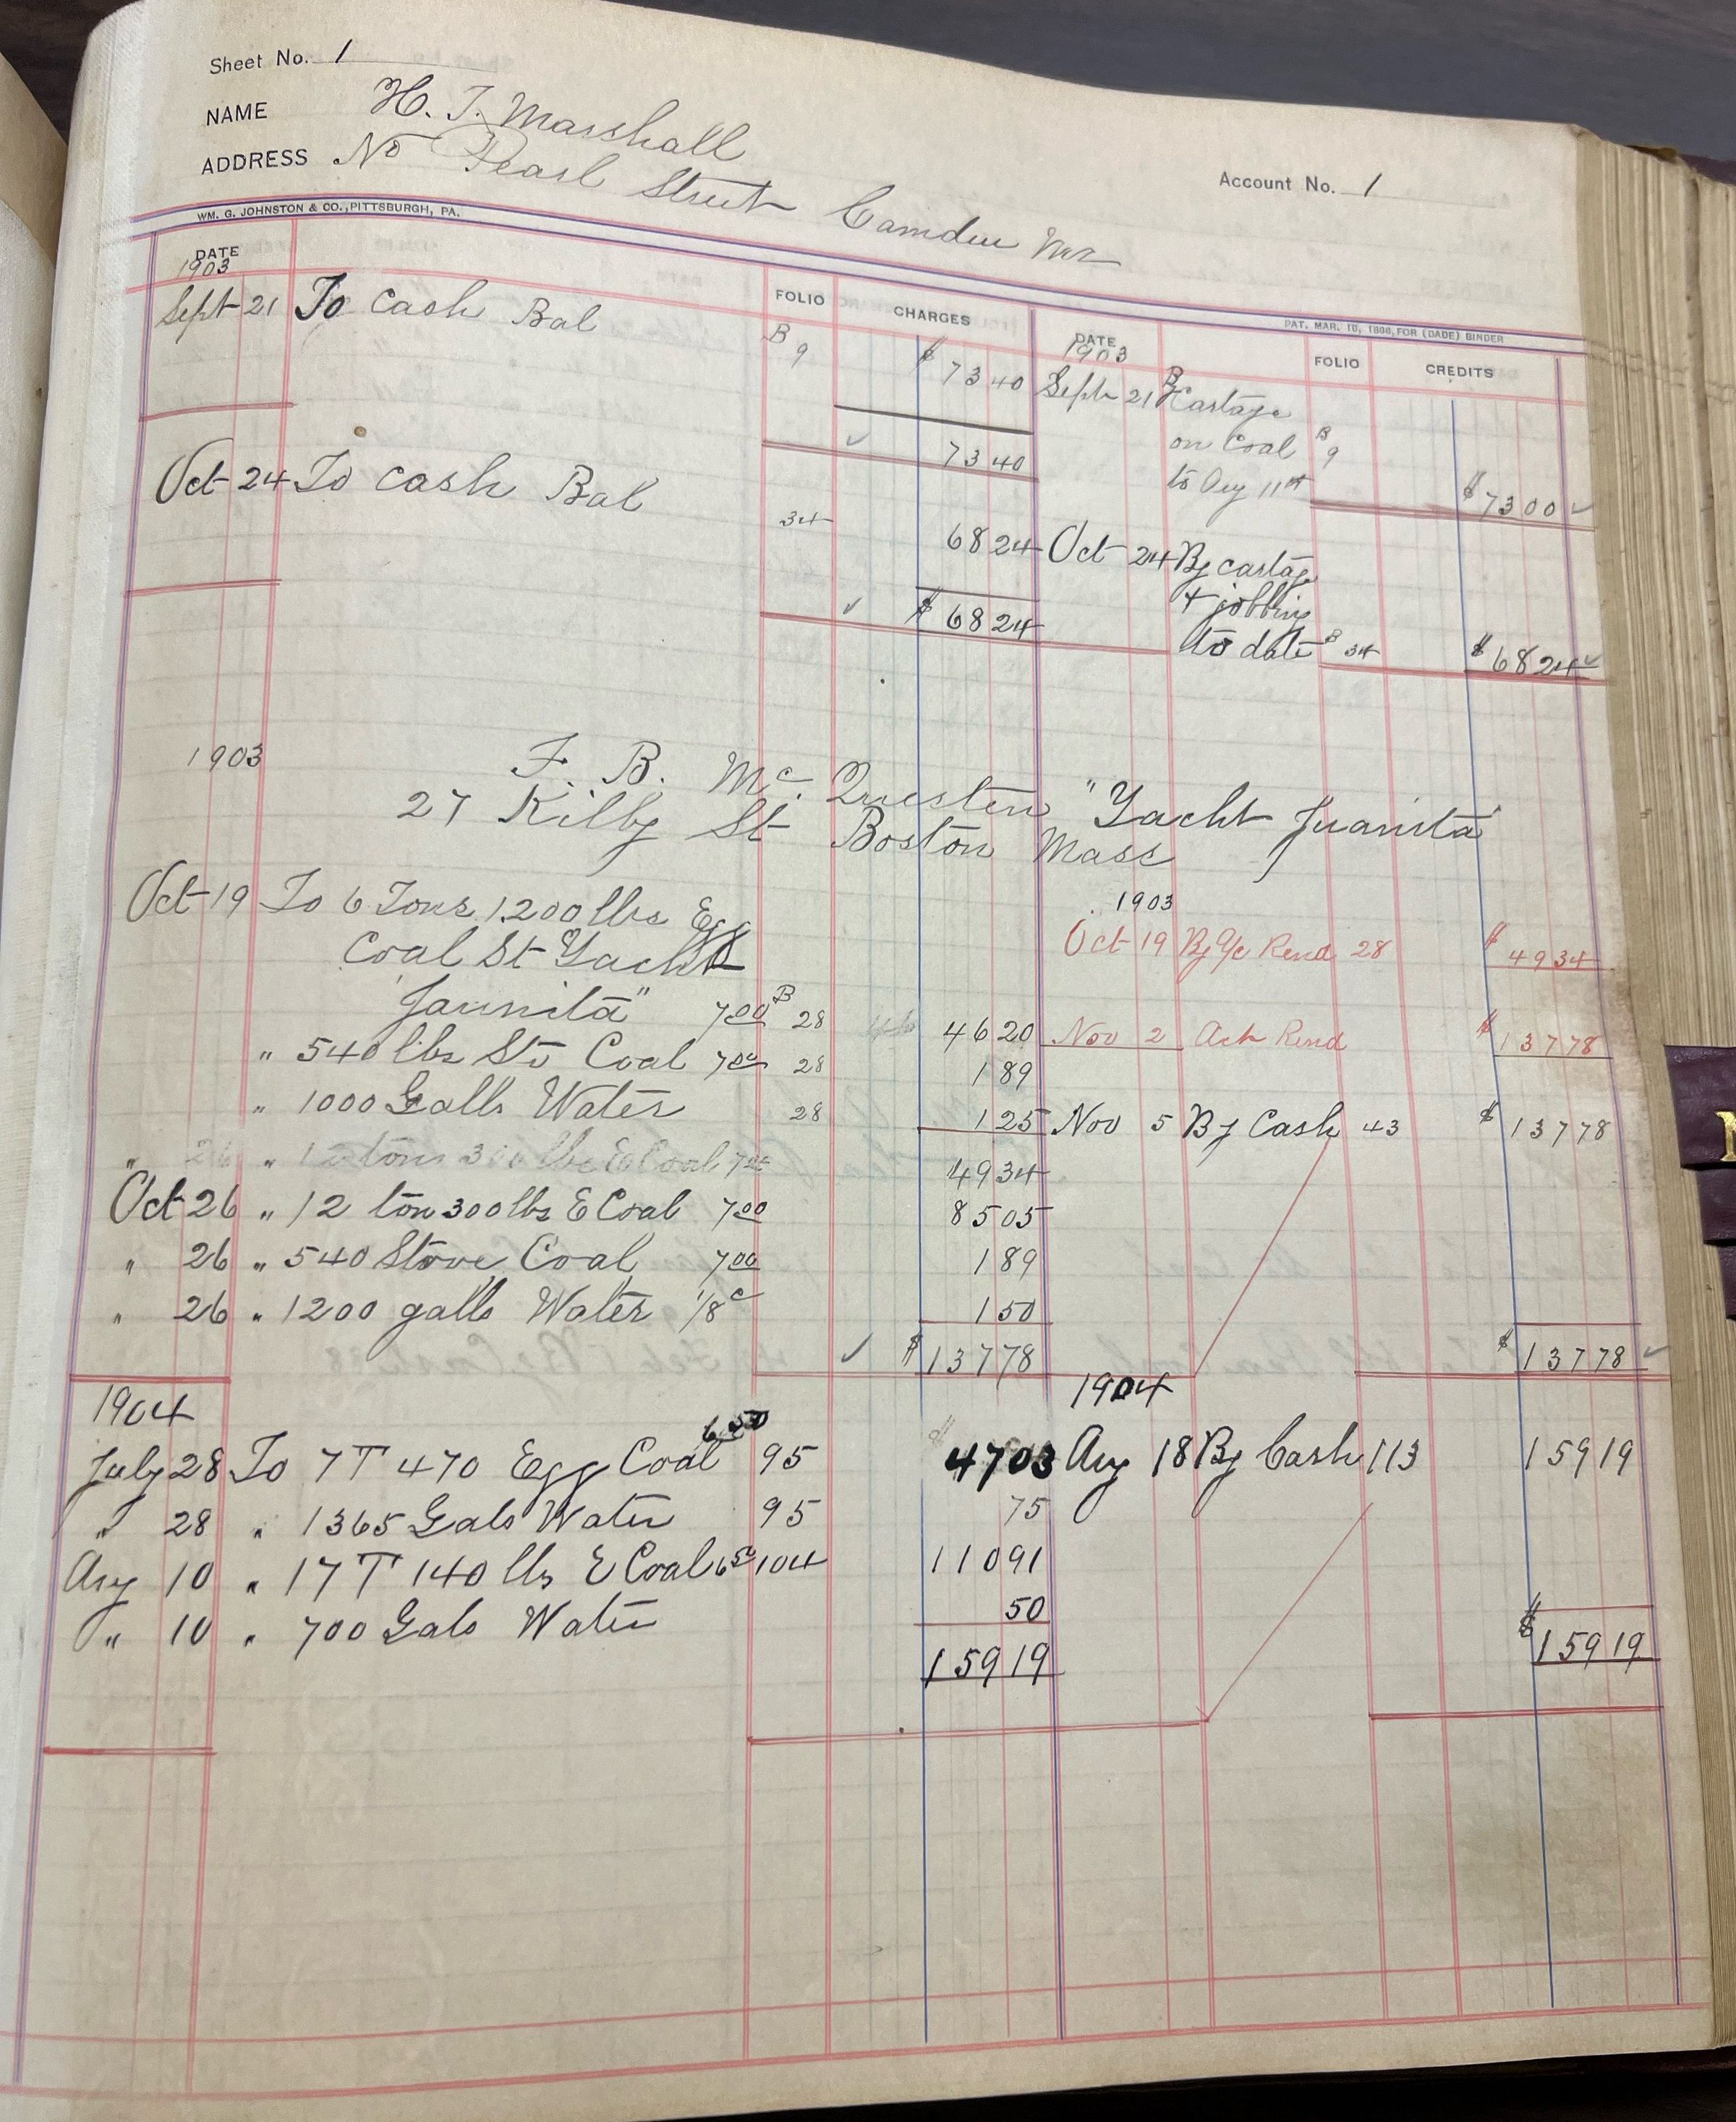 Sheet No. 1
NAME H. T. Marshall
ADDRESS No Pearl Street Camden Me
Account No. 1
WM. G. JOHNSTON & CO., PITTSBURGH, PA.
PAT. MAR. 10, 1898, FOR (DADE) BINDER
DATE FOLIO CHARGES DATE FOLIO CREDITS
1903 1903
Sept 21 To Cash Bal B 9 $ 73 40
Sept 21 By Cartage
on Coal B 9
to Aug 11th $ 73 00 ✓
✓ 73 40
Oct 24 To cash Bal 34 68 24
Oct 24 By cartage
& jobbing
to date B 34 $ 68 24 ✓
✓ $ 68 24
1903 F. B. Mc. Questen "Yacht Juanita"
27 Kilby St Boston Mass
1903
Oct 19 To 6 Tons 1200 lbs Egg
Coal St Yacht
"Jaunita" 7.00 B 28 46 20
Oct 19 By a/c Rend 28 $ 49 34
" 540 lbs Sto Coal 7.00 28 1 89
Nov 2 Act Rend $ 137 78
" 1000 Galls Water 28 1 25
Nov 5 By Cash 43 $ 137 78
" 26 " 12 tons 300 lbs E Coal 7.00 49 34
Oct 26 " 12 ton 300 lbs E Coal 7.00 85 05
" 26 " 540 Stove Coal 7.00 1 89
" 26 " 1200 galls Water 1/8c 1 50
✓ $ 137 78 $ 137 78 ✓
1904 1904
July 28 To 7 T 470 Egg Coal 6.50 95 47 03
Aug 18 By Cash 113 159 19
" 28 " 1365 Gals Water 95 75
Aug 10 " 17 T 140 lbs E Coal 6.50 104 110 91
" 10 " 700 Gals Water 50
159 19 $ 159 19